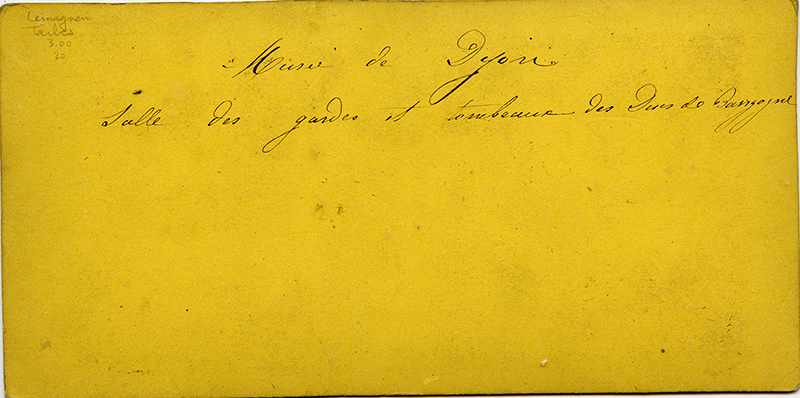 Lemagnen
Tarbes
3.00
20
Musée de Dyon.
Salle des gardes et tombeaux des Ducs de Bourgogne